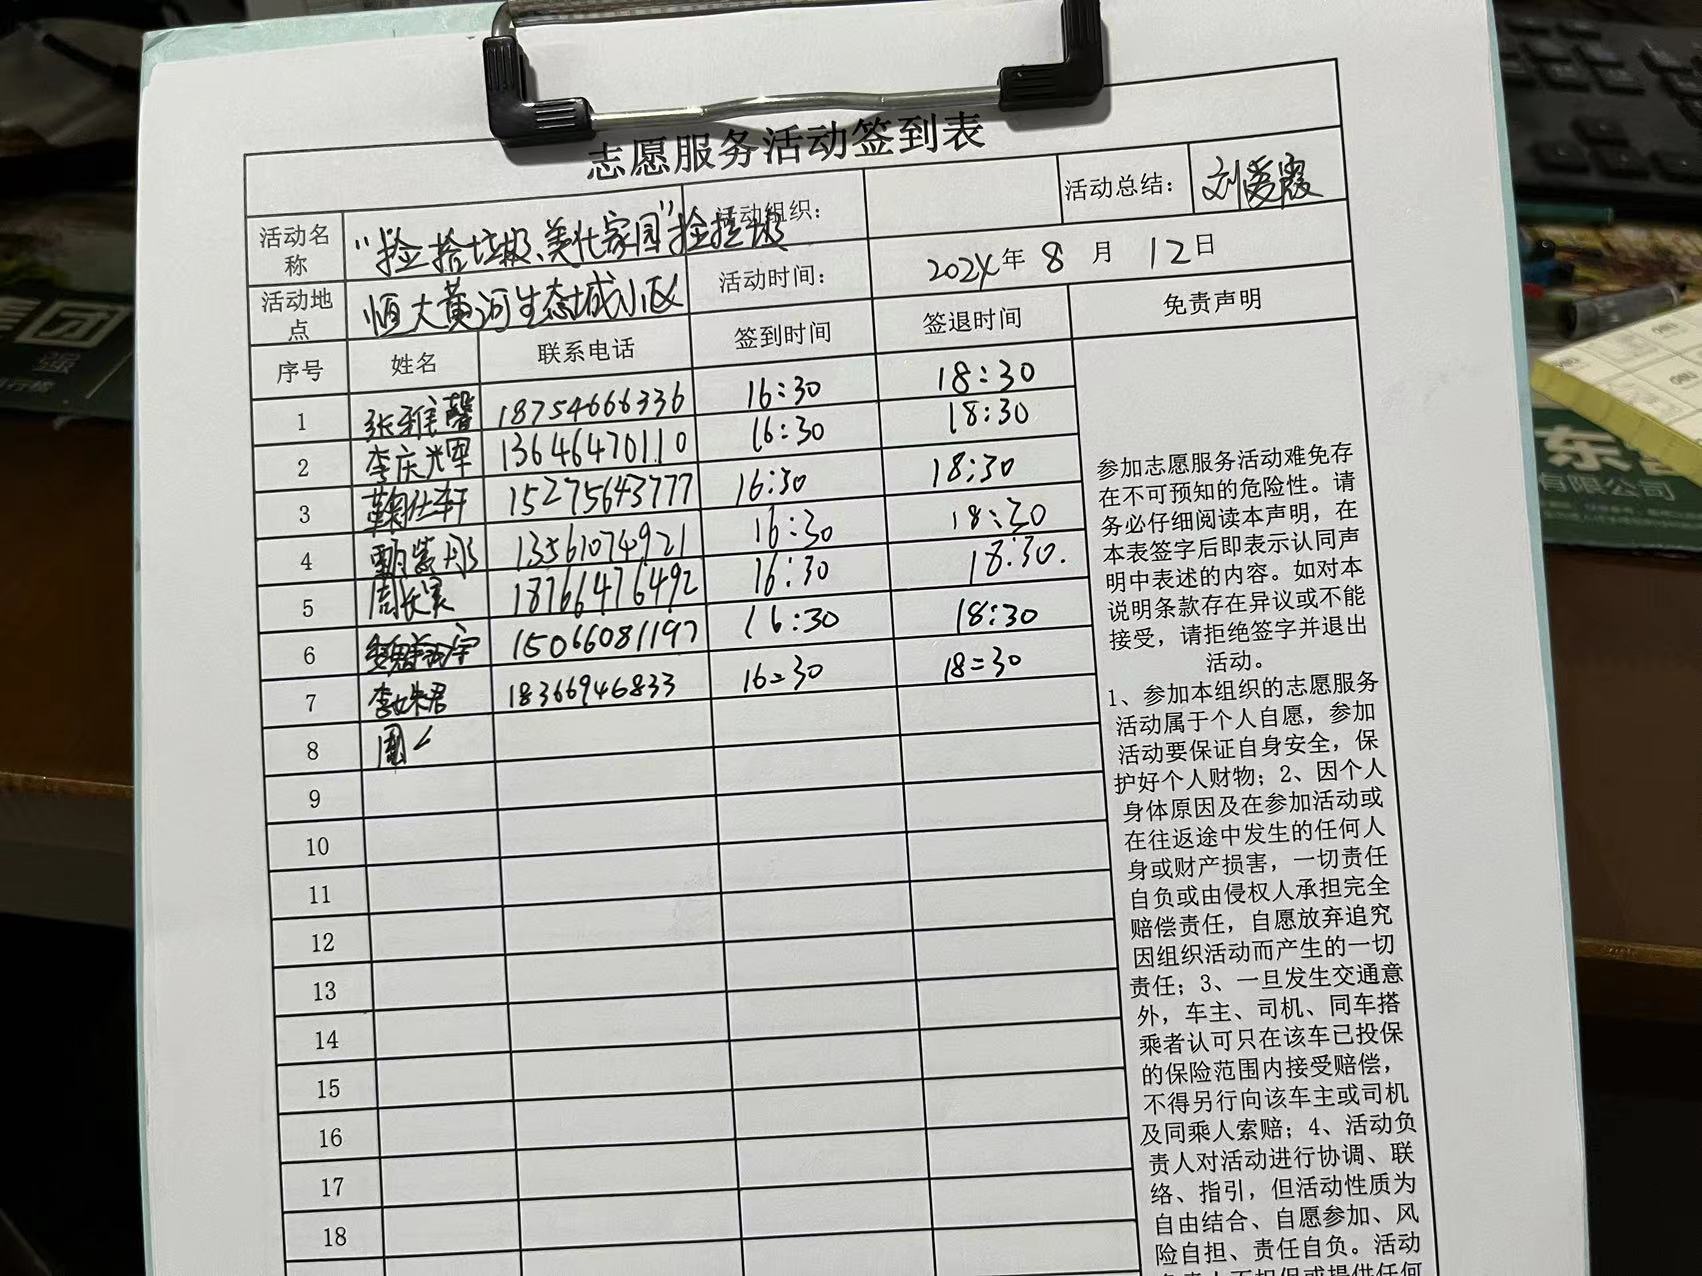 志愿服务活动签到表
活动名称 “捡拾垃圾、美化家园” 活动组织: 活动总结: 刘爱霞
活动地点 恒大黄河生态城小区 活动时间: 2024年 8 月 12日
序号 姓名 联系电话 签到时间 签退时间 免责声明
1 张雅馨 18754666336 16:30 18:30
2 李庆辉 13646470110 16:30 18:30
3 鞠仕轩 15275643777 16:30 18:30
4 紫彤 13561074921 16:30 18:30
5 周长 18766476492 16:30 18:30.
6 宇 15066081197 16:30 18:30
7 李姝君 18366946833 16:30 18:30
8
9
10
11
12
13
14
15
16
17
18
参加志愿服务活动难免存
在不可预知的危险性。请
务必仔细阅读本声明，在
本表签字后即表示认同声
明中表述的内容。如对本
说明条款存在异议或不能
接受，请拒绝签字并退出
活动。
1、参加本组织的志愿服务
活动属于个人自愿，参加
活动要保证自身安全，保
护好个人财物；2、因个人
身体原因及在参加活动或
在往返途中发生的任何人
身或财产损害，一切责任
自负或由侵权人承担完全
赔偿责任，自愿放弃追究
因组织活动而产生的一切
责任；3、一旦发生交通意
外，车主、司机、同车搭
乘者认可只在该车已投保
的保险范围内接受赔偿，
不得另行向该车主或司机
及同乘人索赔；4、活动负
责人对活动进行协调、联
络、指引，但活动性质为
自由结合、自愿参加、风
险自担、责任自负。活动
负责人不担保或提供任何
集团
东
有限公司